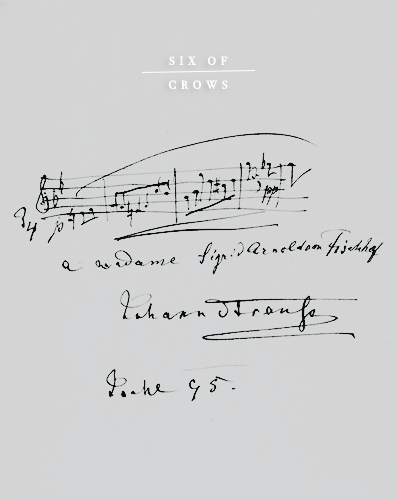 SIX OF
CROWS
3/4 p pp
a madame Sigrid Arnoldson Fischhof
Johann Strauss
95.